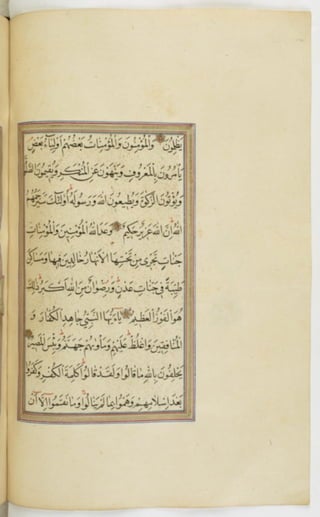 يَظْلِمُونَ وَالْمُؤْمِنُونَ وَالْمُؤْمِنَاتُ بَعْضُهُمْ اَوْلِيَاءُ بَعْضٍ
يَاْمُرُونَ بِالْمَعْرُوفِ وَيَنْهَوْنَ عَنِ الْمُنْكَرِ وَيُقِيمُونَ الصَّلٰوةَ
وَيُؤْتُونَ الزَّكٰوةَ وَيُطِيعُونَ اللّٰهَ وَرَسُولَهُ اُولٰئِكَ سَيَرْحَمُهُمُ
اللّٰهُ اِنَّ اللّٰهَ عَزِيزٌ حَكِيمٌ وَعَدَ اللّٰهُ الْمُؤْمِنِينَ وَالْمُؤْمِنَاتِ
جَنَّاتٍ تَجْرِى مِنْ تَحْتِهَا الْاَنْهَارُ خَالِدِينَ فِيهَا وَمَسَاكِنَ
طَيِّبَةً فِى جَنَّاتِ عَدْنٍ وَرِضْوَانٌ مِنَ اللّٰهِ اَكْبَرُ ذٰلِكَ
هُوَ الْفَوْزُ الْعَظِيمُ يَا اَيُّهَا النَّبِىُّ جَاهِدِ الْكُفَّارَ وَ
الْمُنَافِقِينَ وَاغْلُظْ عَلَيْهِمْ وَمَاْوٰيهُمْ جَهَنَّمُ وَبِئْسَ الْمَصِيرُ
يَحْلِفُونَ بِاللّٰهِ مَا قَالُوا وَلَقَدْ قَالُوا كَلِمَةَ الْكُفْرِ وَكَفَرُوا
بَعْدَ اِسْلَامِهِمْ وَهَمُّوا بِمَا لَمْ يَنَالُوا وَمَا نَقَمُوا اِلَّا اَنْ